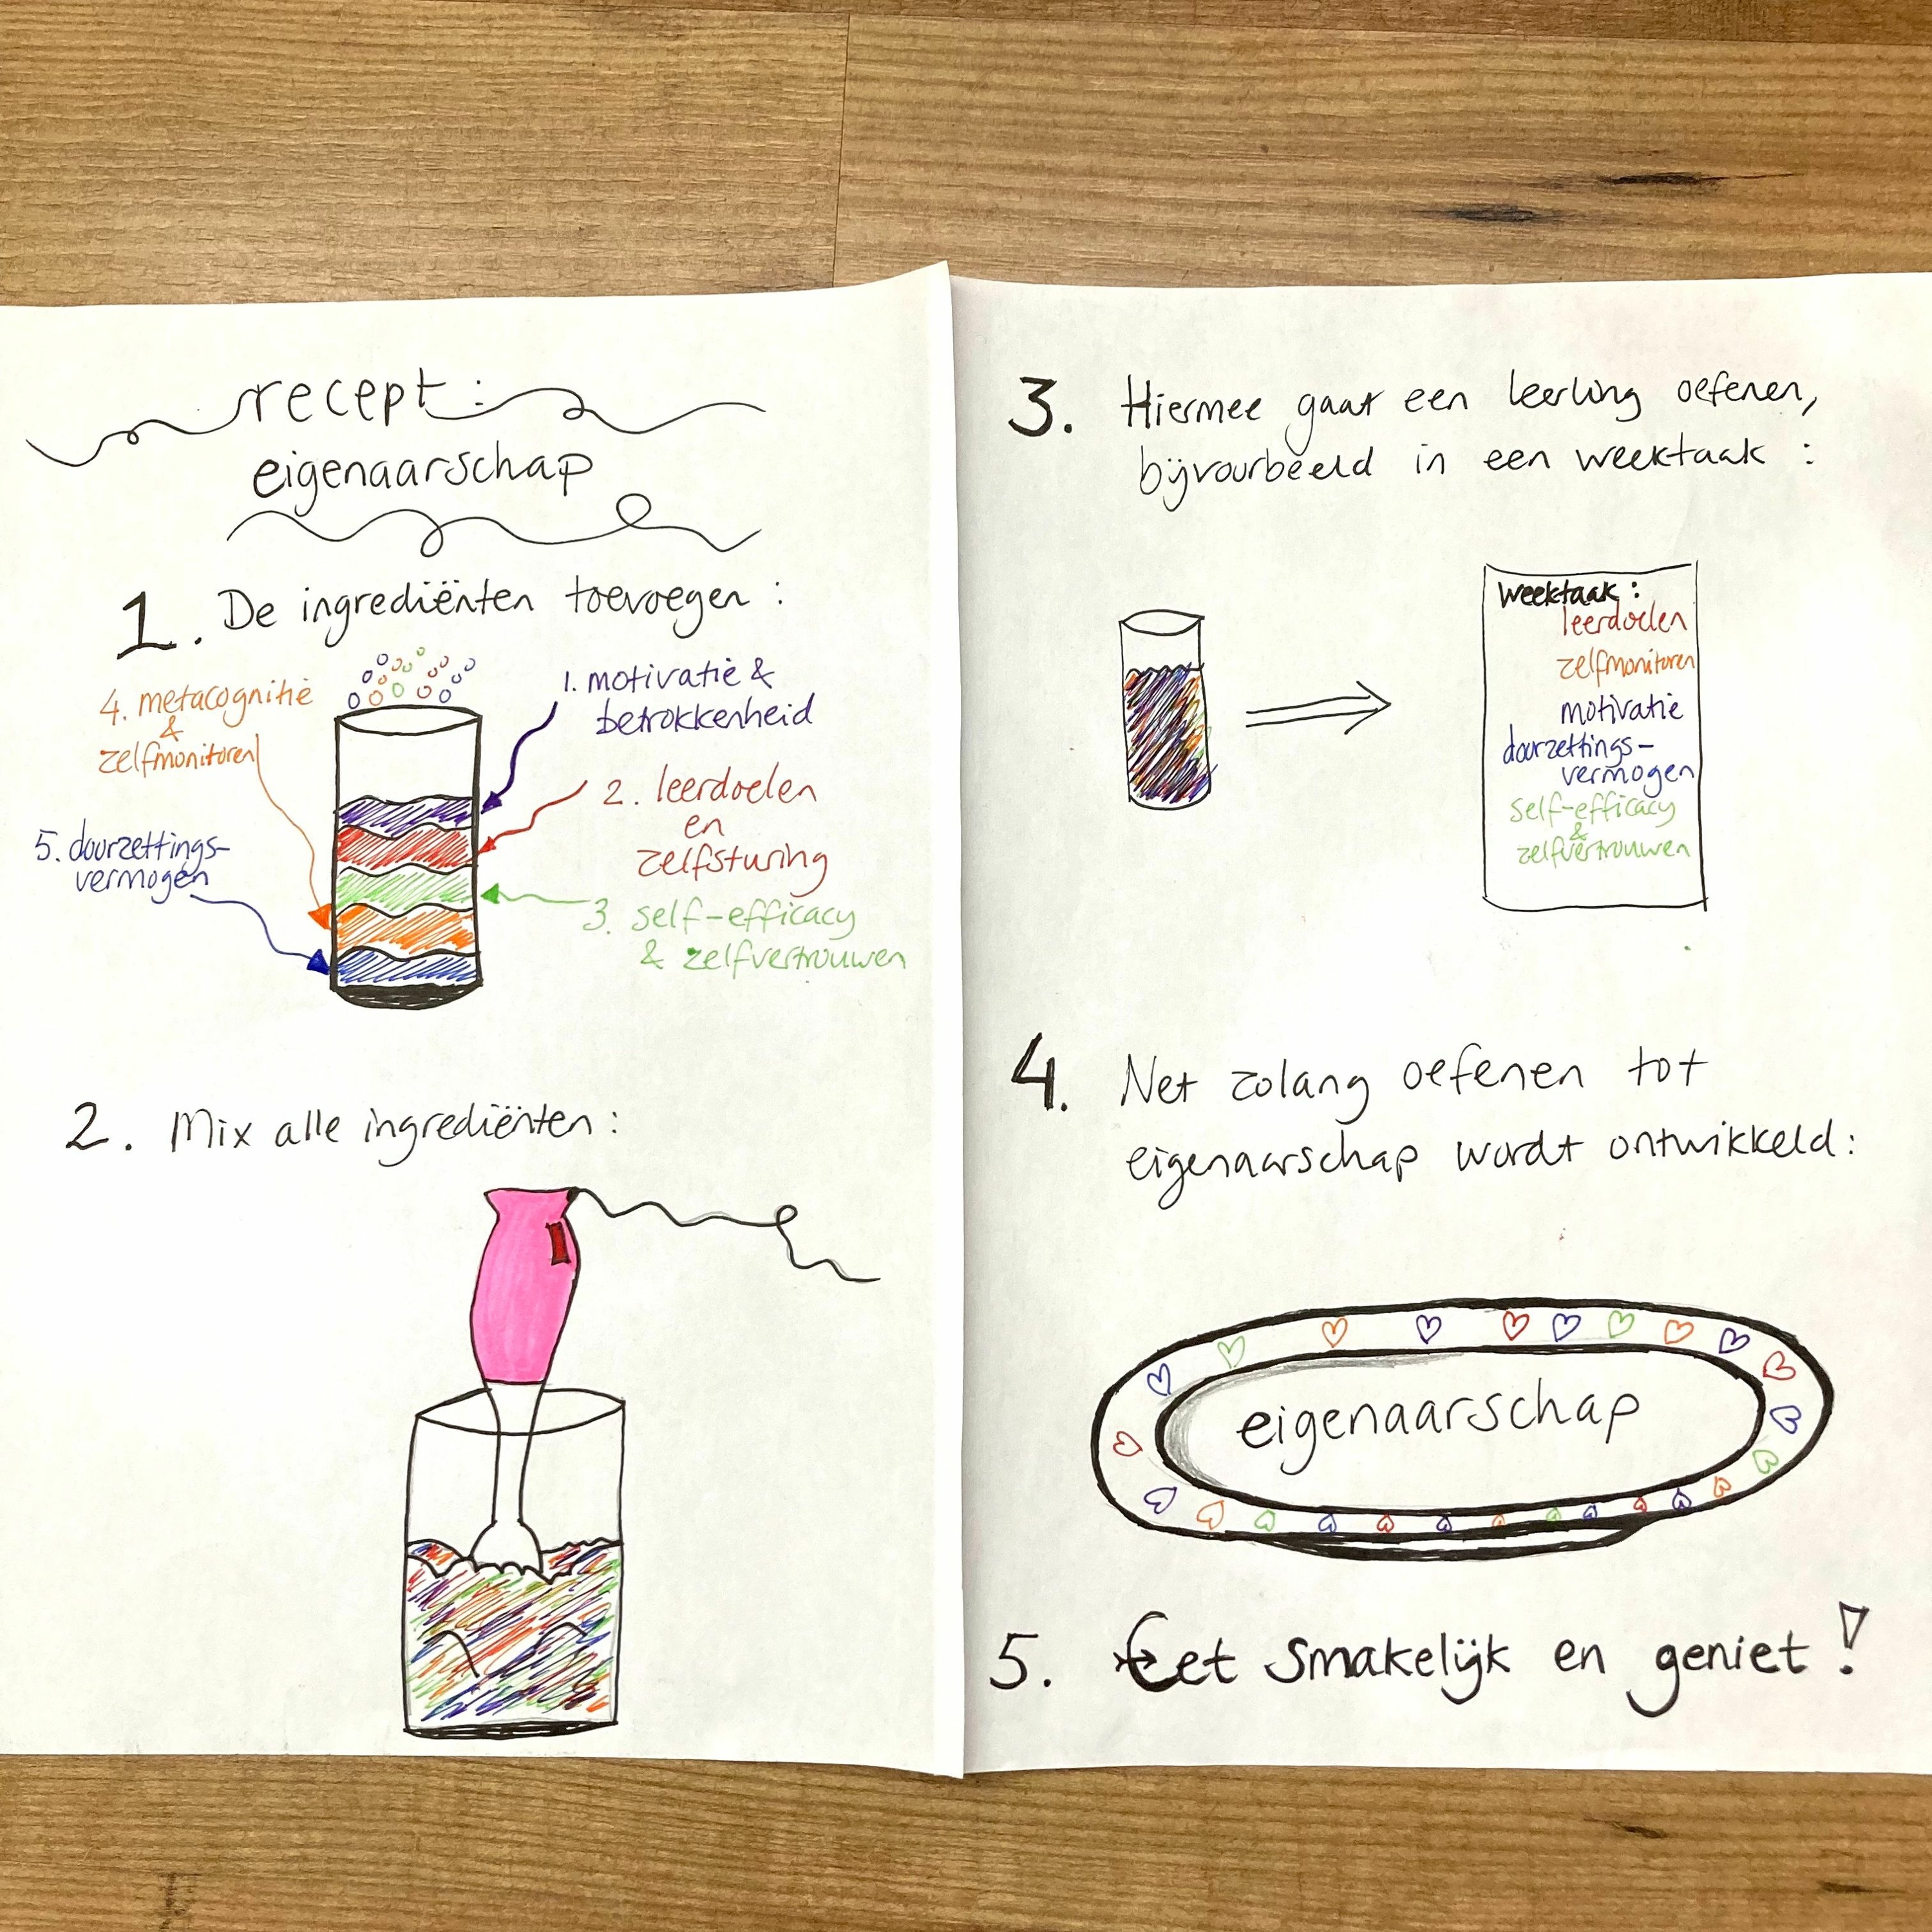 recept:
eigenaarschap
1. De ingrediënten toevoegen:
1. motivatie &
betrokkenheid
2. leerdoelen
en
zelfsturing
3. self-efficacy
& zelfvertrouwen
4. metacognitie
&
zelfmonitoren
5. doorzettings-
vermogen
2. Mix alle ingrediënten:
3. Hiermee gaat een leerling oefenen,
bijvoorbeeld in een weektaak:
weektaak:
leerdoelen
zelfmonitoren
motivatie
doorzettings-
vermogen
self-efficacy
&
zelfvertrouwen
4. Net zolang oefenen tot
eigenaarschap wordt ontwikkeld:
eigenaarschap
5. Eet smakelijk en geniet!